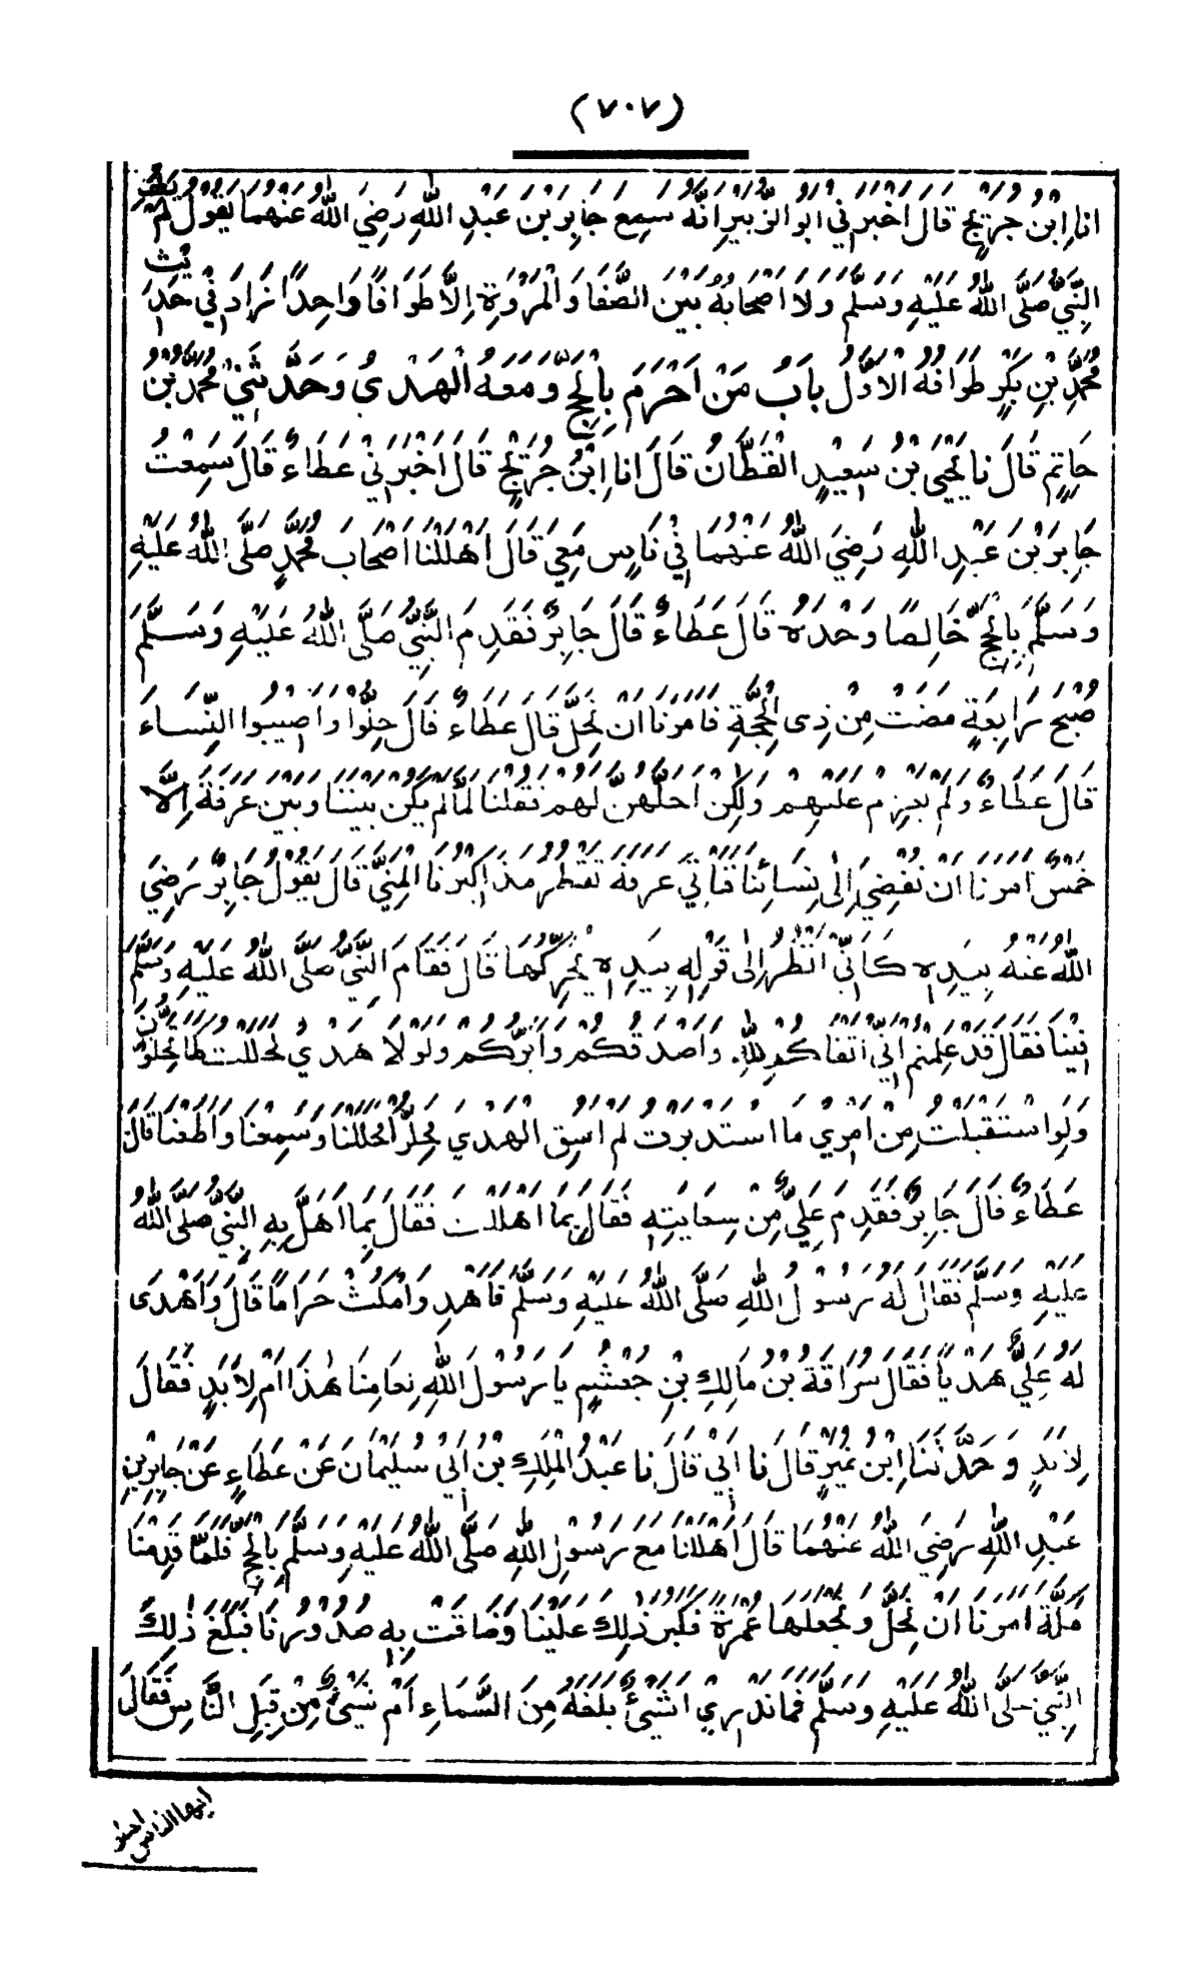 (٧٠٧)
انا ابْنُ جُرَيْجٍ قَالَ اَخْبَرَنِي اَبُو الزُّبَيْرِ اَنَّهُ سَمِعَ جَابِرَ بْنَ عَبْدِ اللّٰهِ رَضِيَ اللّٰهُ عَنْهُمَا يَقُولُ لَمْ يَطُفِ
النَّبِيُّ صَلَّى اللّٰهُ عَلَيْهِ وَسَلَّمَ وَلَا اَصْحَابُهُ بَيْنَ الصَّفَا وَالْمَرْوَةِ اِلَّا طَوَافًا وَاحِدًا زَادَ فِي حَدِيْثِ
مُحَمَّدِ بْنِ بَكْرٍ طَوَافَهُ الْاَوَّلَ بَابُ مَنْ اَحْرَمَ بِالْحَجِّ وَمَعَهُ الْهَدْىُ وَحَدَّثَنِيْ مُحَمَّدُ بْنُ
حَاتِمٍ قَالَ نا يَحْيَى بْنُ سَعِيْدٍ الْقَطَّانُ قَالَ انا ابْنُ جُرَيْجٍ قَالَ اَخْبَرَنِيْ عَطَاءٌ قَالَ سَمِعْتُ
جَابِرَ بْنَ عَبْدِ اللّٰهِ رَضِيَ اللّٰهُ عَنْهُمَا فِيْ نَاسٍ مَعِيَ قَالَ اَهْلَلْنَا اَصْحَابَ مُحَمَّدٍ صَلَّى اللّٰهُ عَلَيْهِ
وَسَلَّمَ بِالْحَجِّ خَالِصًا وَحْدَهُ قَالَ عَطَاءٌ قَالَ جَابِرٌ فَقَدِمَ النَّبِيُّ صَلَّى اللّٰهُ عَلَيْهِ وَسَلَّمَ
صُبْحَ رَابِعَةٍ مَضَتْ مِنْ ذِى الْحِجَّةِ فَاَمَرَنَا اَنْ نَحِلَّ قَالَ عَطَاءٌ قَالَ حِلُّوْا وَاَصِيْبُوا النِّسَاءَ
قَالَ عَطَاءٌ وَلَمْ يَعْزِمْ عَلَيْهِمْ وَلٰكِنْ اَحَلَّهُنَّ لَهُمْ فَقُلْنَا لَمَّا لَمْ يَكُنْ بَيْنَنَا وَبَيْنَ عَرَفَةَ اِلَّا
خَمْسٌ اَمَرَنَا اَنْ نُفْضِيَ اِلٰى نِسَائِنَا فَنَاْتِيَ عَرَفَةَ تَقْطُرُ مَذَاكِيْرُنَا الْمَنِيَّ قَالَ يَقُوْلُ جَابِرٌ رَضِيَ
اللّٰهُ عَنْهُ بِيَدِهٖ كَاَنِّيْ اَنْظُرُ اِلٰى قَوْلِهٖ بِيَدِهٖ يُحَرِّكُهَا قَالَ فَقَامَ النَّبِيُّ صَلَّى اللّٰهُ عَلَيْهِ وَسَلَّمَ
فِيْنَا فَقَالَ قَدْ عَلِمْتُمْ اَنِّيْ اَتْقَاكُمْ لِلّٰهِ وَاَصْدَقُكُمْ وَاَبَرُّكُمْ وَلَوْلَا هَدْيِيْ لَحَلَلْتُ كَمَا تَحِلُّوْنَ
وَلَوِ اسْتَقْبَلْتُ مِنْ اَمْرِيْ مَا اسْتَدْبَرْتُ لَمْ اَسُقِ الْهَدْيَ فَحِلُّوْا فَحَلَلْنَا وَسَمِعْنَا وَاَطَعْنَا قَالَ
عَطَاءٌ قَالَ جَابِرٌ فَقَدِمَ عَلِيٌّ مِّنْ سِعَايَتِهٖ فَقَالَ بِمَا اَهْلَلْتَ فَقَالَ بِمَا اَهَلَّ بِهِ النَّبِيُّ صَلَّى اللّٰهُ
عَلَيْهِ وَسَلَّمَ فَقَالَ لَهُ رَسُوْلُ اللّٰهِ صَلَّى اللّٰهُ عَلَيْهِ وَسَلَّمَ فَاَهْدِ وَامْكُثْ حَرَامًا قَالَ وَاَهْدَى
لَهُ عَلِيٌّ هَدْيًا فَقَالَ سُرَاقَةُ بْنُ مَالِكِ بْنِ جُعْشُمٍ يَا رَسُوْلَ اللّٰهِ لِعَامِنَا هٰذَا اَمْ لِاَبَدٍ فَقَالَ
لِاَبَدٍ وَحَدَّثَنَا ابْنُ نُمَيْرٍ قَالَ نَا اَبِيْ قَالَ نَا عَبْدُ الْمَلِكِ بْنُ اَبِيْ سُلَيْمَانَ عَنْ عَطَاءٍ عَنْ جَابِرِ بْنِ
عَبْدِ اللّٰهِ رَضِيَ اللّٰهُ عَنْهُمَا قَالَ اَهْلَلْنَا مَعَ رَسُوْلِ اللّٰهِ صَلَّى اللّٰهُ عَلَيْهِ وَسَلَّمَ بِالْحَجِّ فَلَمَّا قَدِمْنَا
مَكَّةَ اَمَرَنَا اَنْ نَحِلَّ وَنَجْعَلَهَا عُمْرَةً فَكَبُرَ ذٰلِكَ عَلَيْنَا وَضَاقَتْ بِهٖ صُدُوْرُنَا فَبَلَغَ ذٰلِكَ
النَّبِيَّ صَلَّى اللّٰهُ عَلَيْهِ وَسَلَّمَ فَمَا نَدْرِيْ اَشَيْءٌ بَلَغَهُ مِنَ السَّمَاءِ اَمْ شَيْءٌ مِنْ قِبَلِ النَّاسِ فَقَالَ
ايها الناس احلوا